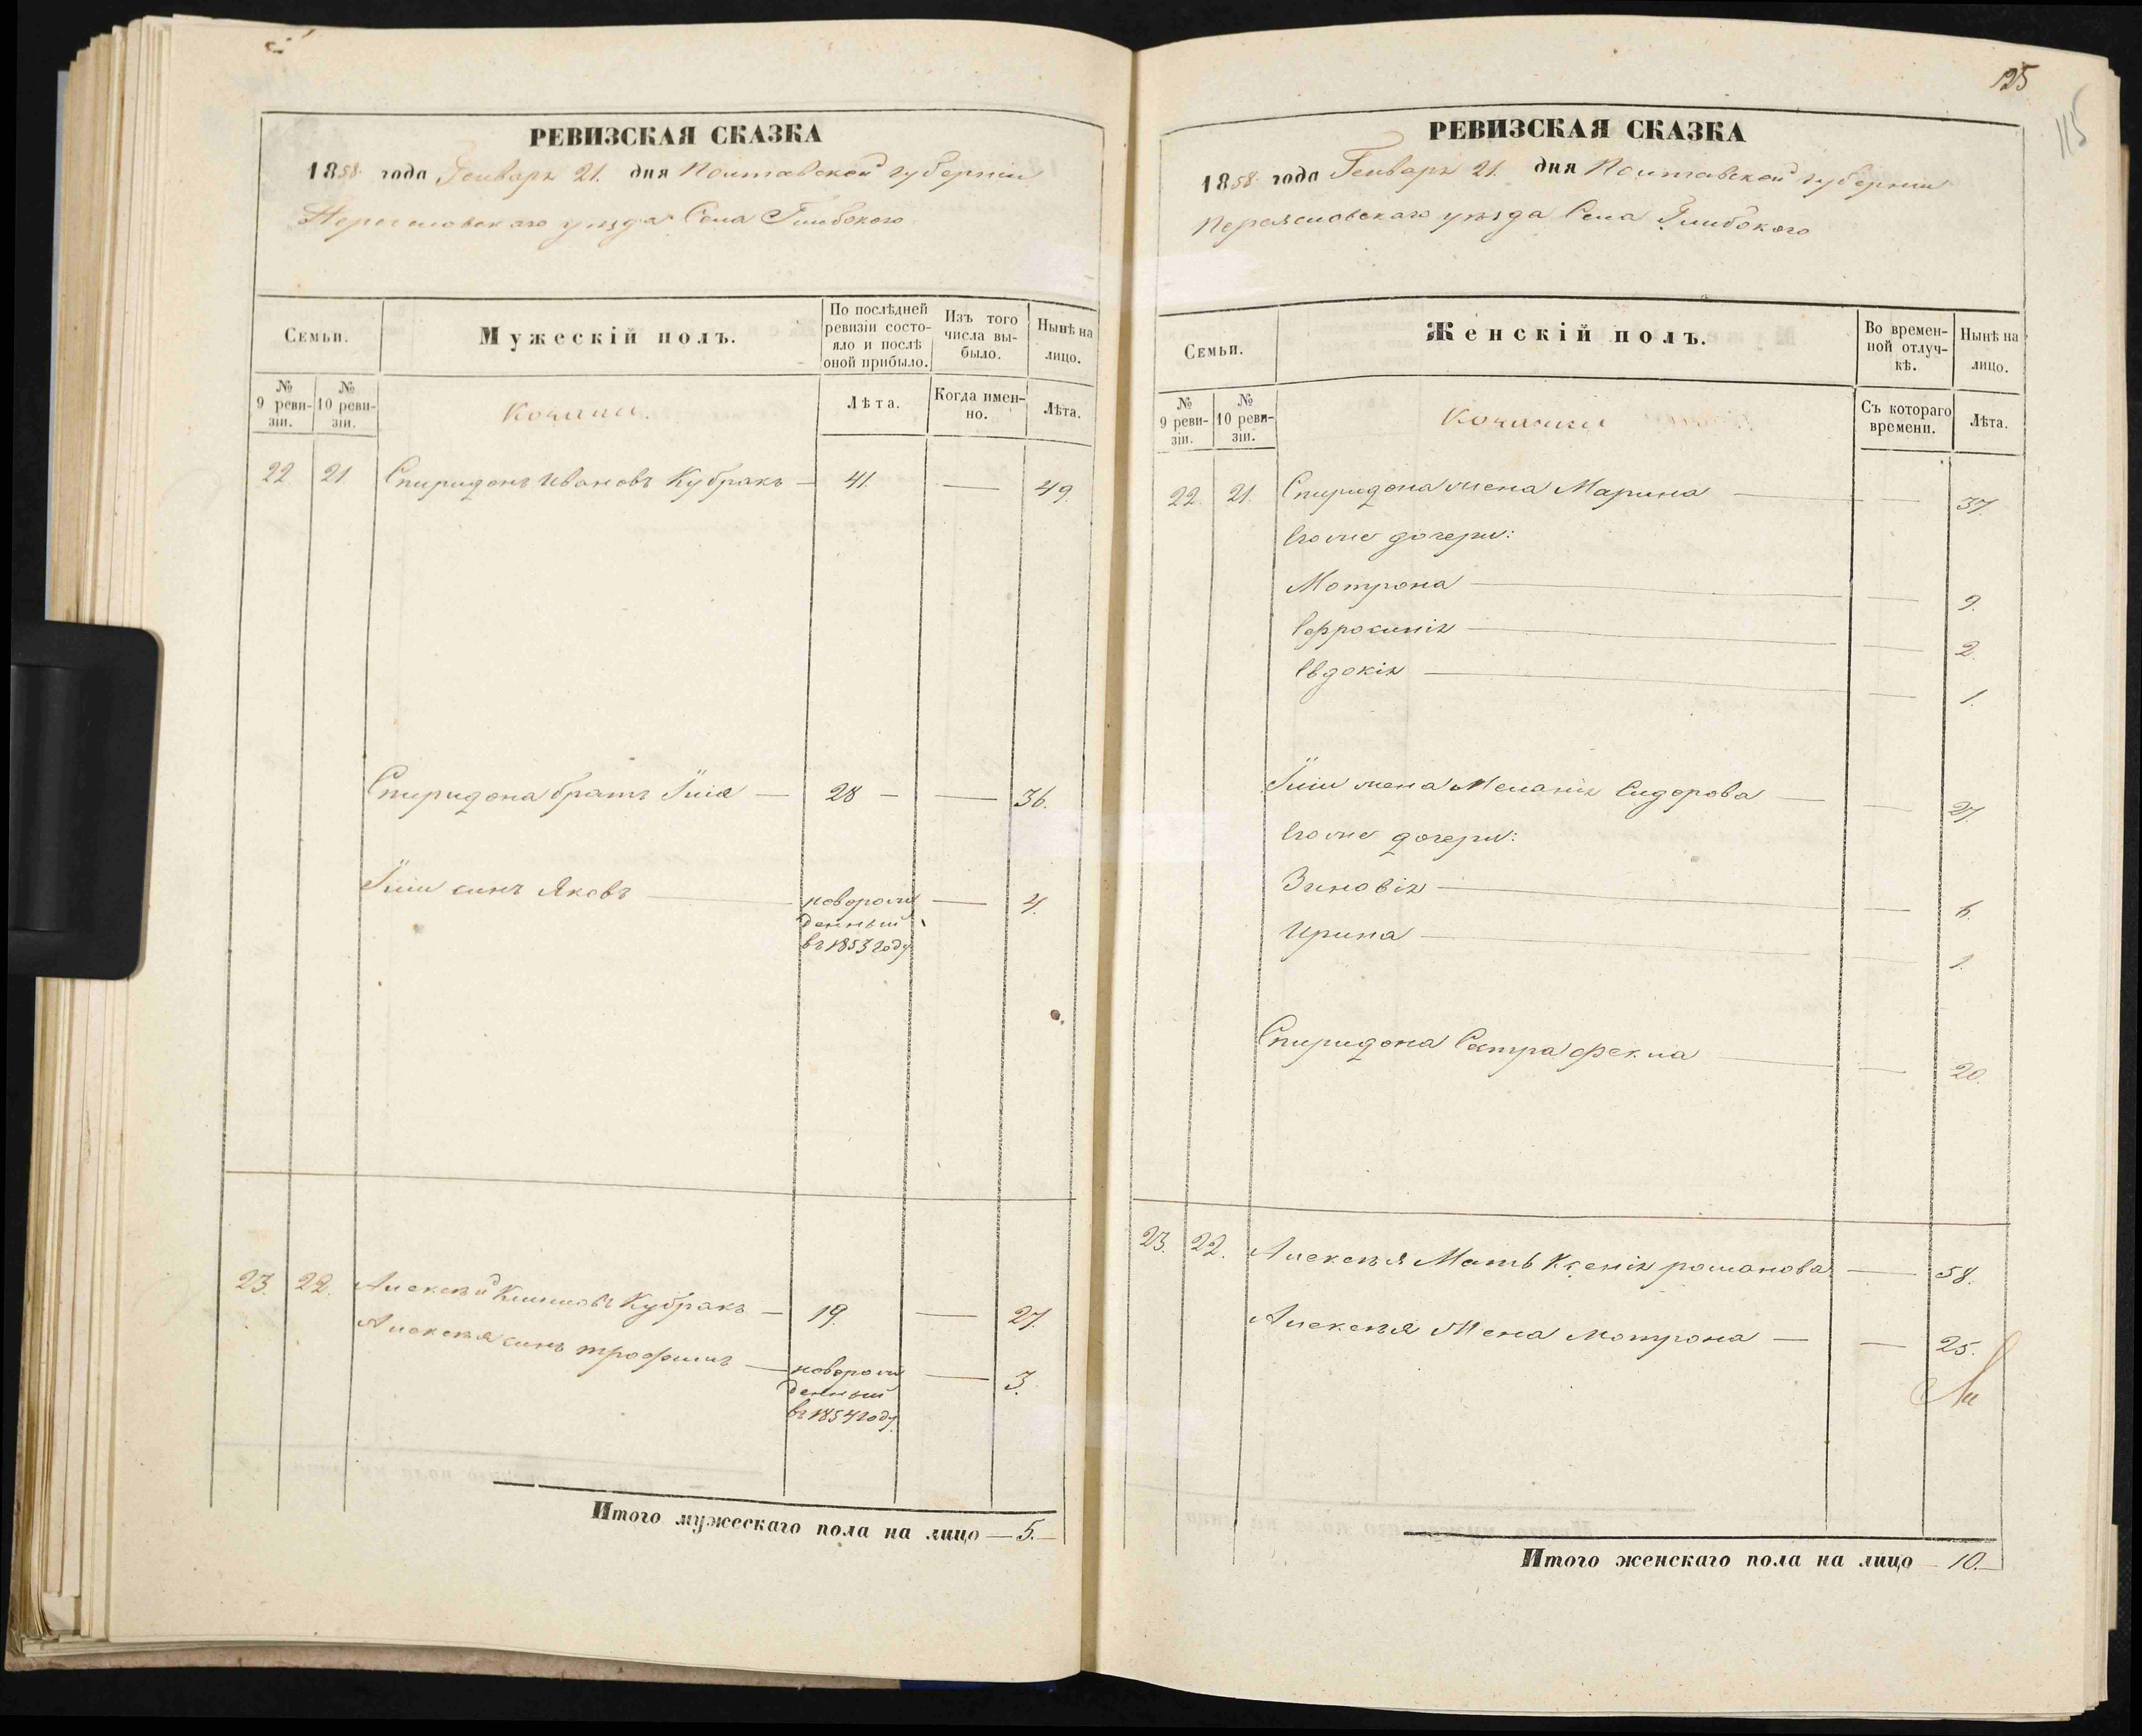 РЕВИЗСКАЯ СКАЗКА
1858 года Генваря 21. дня Полтавской губернии
Переясловскаго уезда Села Глибокого
Семьи.
Мужескій полъ.
По послѣдней ревизіи состо-
яло и послѣ
оной прибыло.
Изъ того
числа вы-
было.
Нынѣ на
лицо.
№
9 реви-
зіи.
№
10 реви-
зіи.
Козаки.
Лѣта.
Когда имен-
но.
Лѣта.
22. 21 Спиридонъ Ивановъ Кубракъ — 41. — 49.
Спиридона братъ Илія — 28 — — 36.
Иліи синъ Яковъ — новорож — 4.
денный
въ 1853 году
23. 22. Алексѣй Климовъ Кубракъ — 19. — 27.
Алексѣя синъ трофимъ — новорож — 3.
денный
въ 1854 году
Итого мужескаго пола на лицо — 5. —
125
115
РЕВИЗСКАЯ СКАЗКА
1858 года Генваря 21. дня Полтавской губернии
Переясловскаго уѣзда Села Глибокого
Семьи.
Женскій полъ.
Во времен-
ной отлуч-
кѣ.
Нынѣ на
лицо.
№
9 реви-
зіи.
№
10 реви-
зіи.
Козачки
Съ котораго
времени.
Лѣта.
22. 21. Спиридона жена Марина — — 37.
Его же дочери:
Мотрона — — 9.
Ефросинія — — 2.
Евдокія — — 1.
Иліи жена Меланія Сидорова — — 27.
Его же дочери:
Зиновія — — 6.
Ирина — — 1.
Спиридона Сестра Фекла — — 20.
23. 22. Алексѣя Мать Ксенія романова — 58.
Алексѣя Жена Мотрона — — 25.
Итого женскаго пола на лицо — 10. —